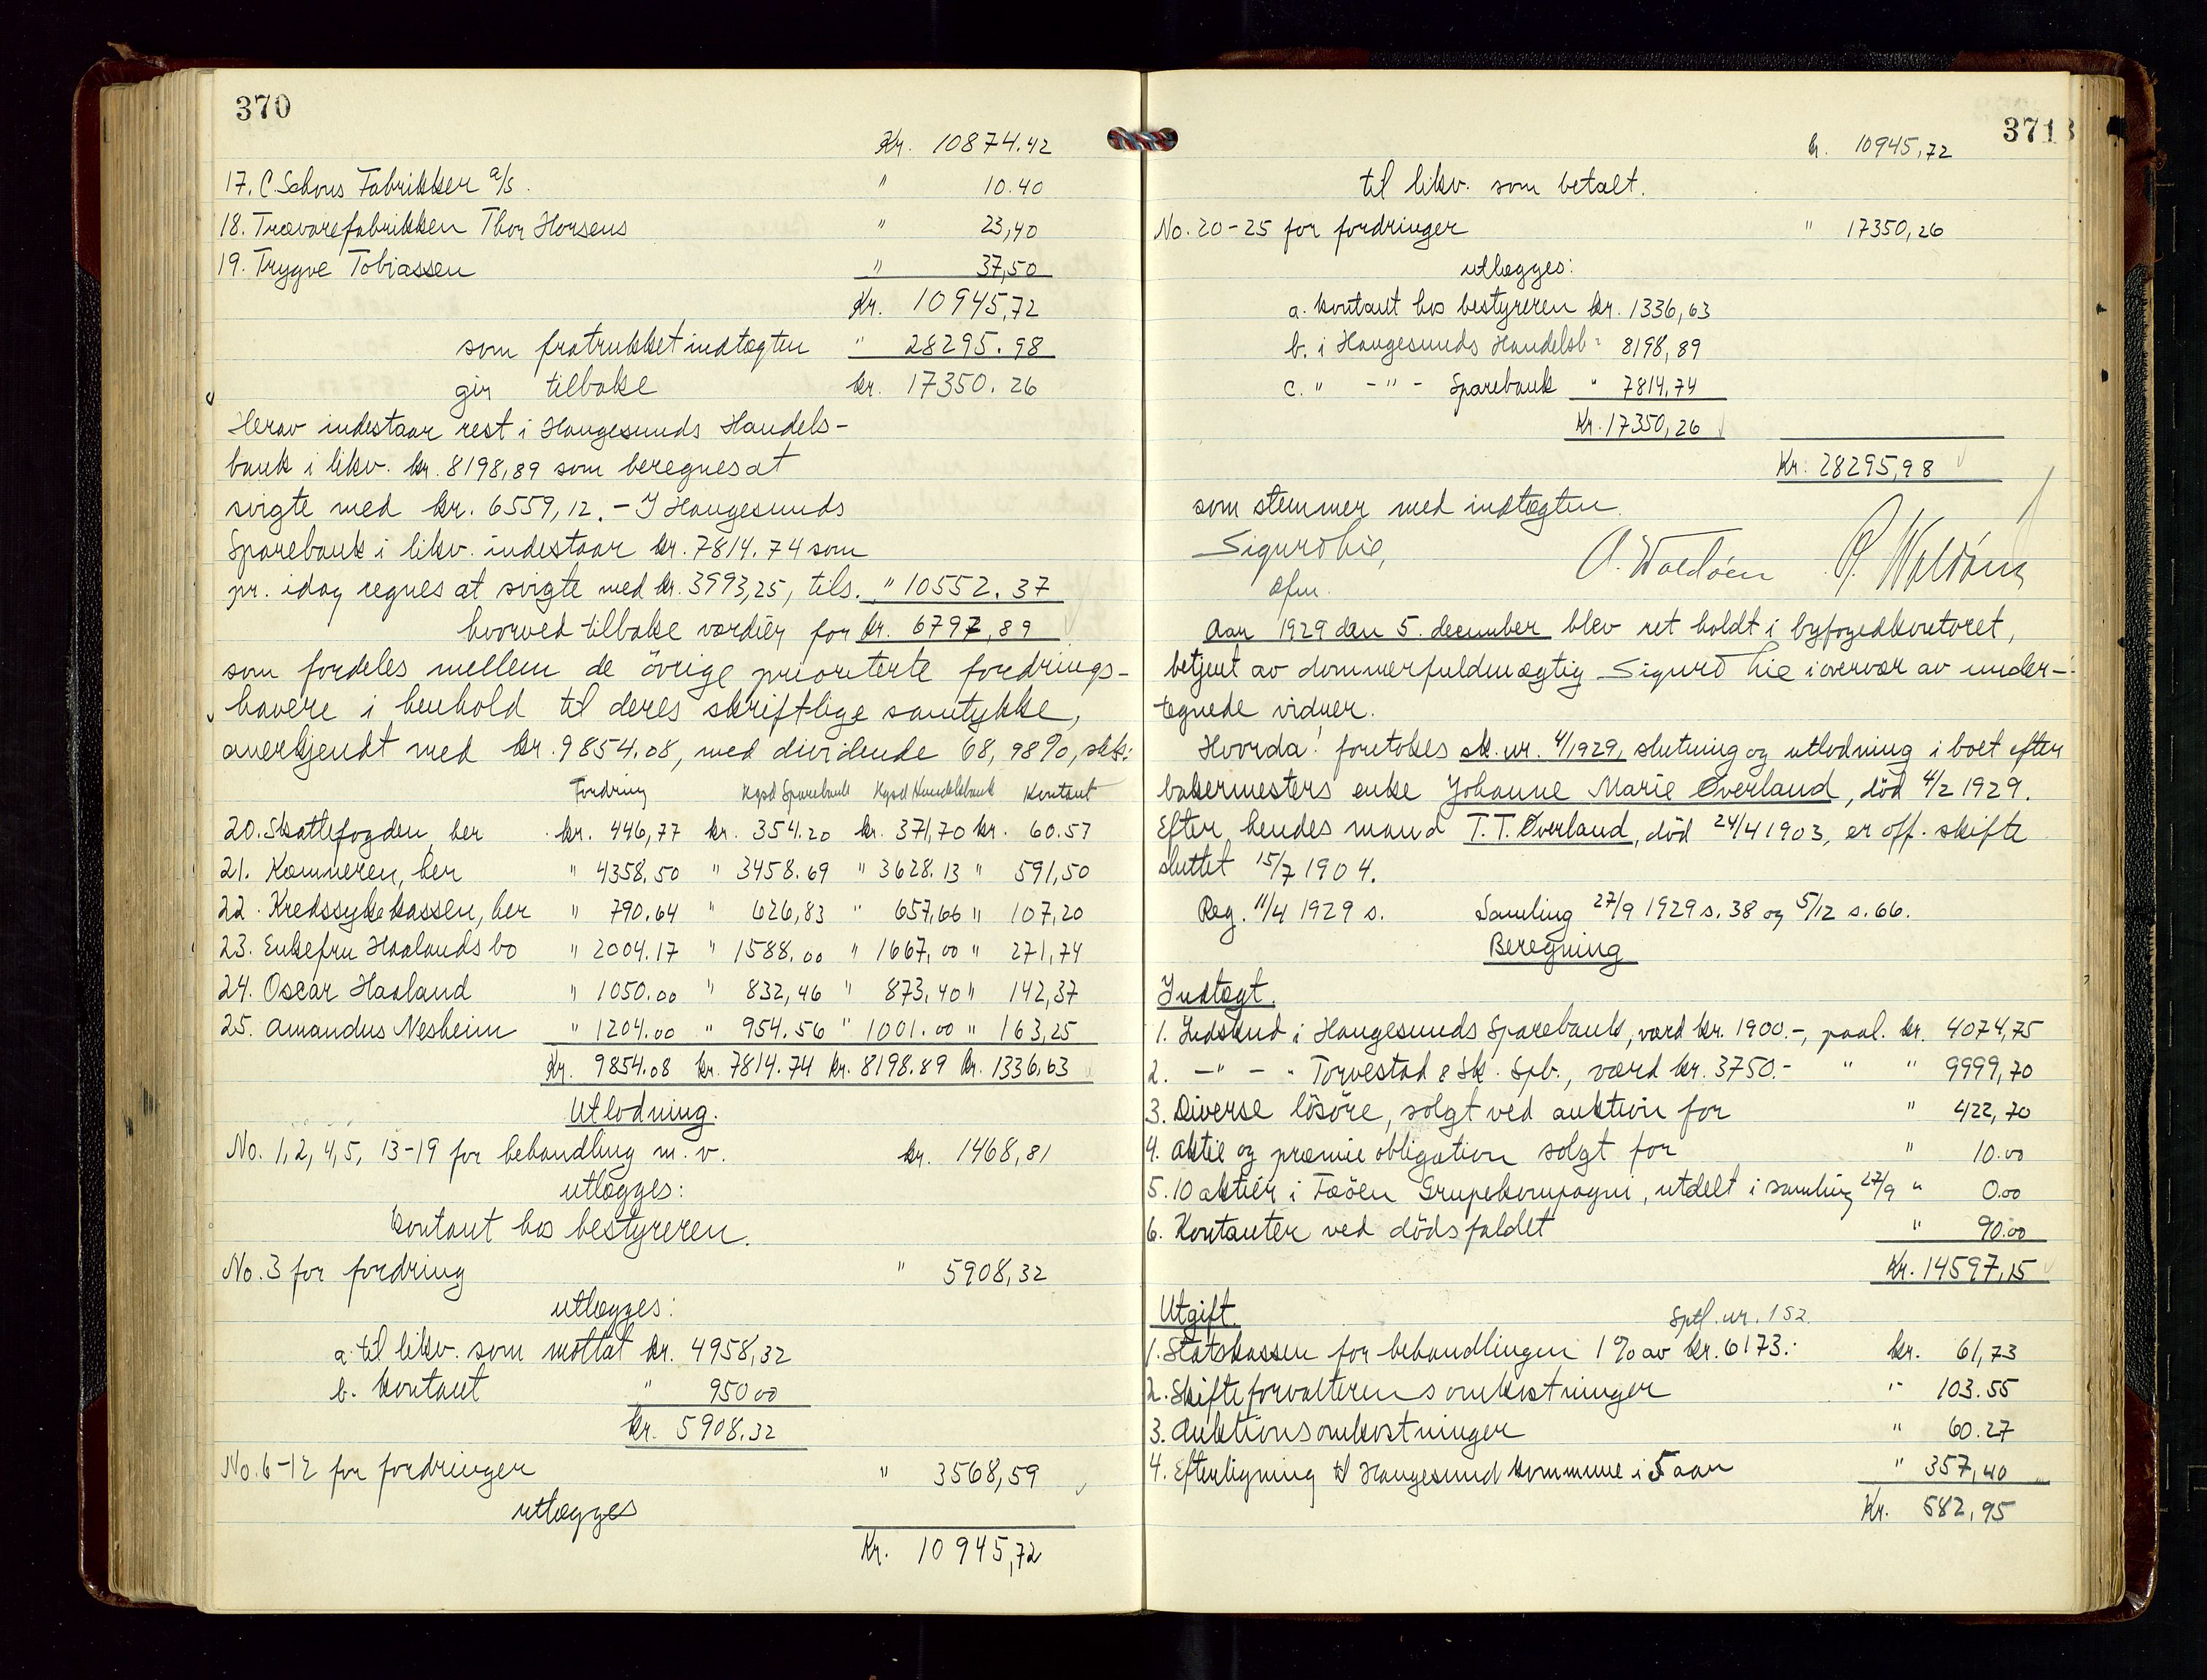 370
Kr. 10874.42
17. C. Schous Fabrikker a/s. " 10.40
18. Trævarefabrikken Thor Horsens " 23,40
19. Trygve Tobiassen " 37,50
Kr. 10945,72
som fratrukket indtægten " 28295.98
gir tilbake kr. 17350.26
Herav indestaar rest i Haugesunds Handels-
bank i likv. kr. 8198,89 som beregnes at
svigte med kr. 6559,12. - I Haugesunds
Sparebank i likv. indestaar kr. 7814.74 som
pr. idag regnes at svigte med kr. 3993,25, tils. " 10552.37
hvorved tilbake værdier for kr. 6797,89
som fordeles mellem de övrige prioriterte fordrings-
havere i henhold til deres skriftlige samtykke,
anerkjendt med kr. 9854.08, med dividende 68,98%, slik:
Fordring Hgsd Sparebank Hgsd Handelsbank Kontant
20. Skattefogden, her kr. 446,77 kr. 354.20 kr. 371,70 kr. 60.57
21. Kæmneren, her " 4358.50 " 3458.69 " 3628.13 " 591,50
22. Kredssykekassen, her " 790.64 " 626,83 " 657,66 " 107,20
23. Enkefru Haalands bo " 2004.17 " 1588.00 " 1667,00 " 271,74
24. Oscar Haaland " 1050.00 " 832,46 " 873,40 " 142,37
25. Amandus Nesheim " 1204.00 " 954.56 " 1001.00 " 163,25
Kr. 9854.08 kr. 7814.74 kr. 8198.89 kr. 1336,63
Utlodning.
No. 1, 2, 4, 5, 13-19 for behandling m. v. kr. 1468,81
utlægges:
kontant hos bestyreren.
No. 3 for fordring " 5908,32
utlægges:
a. til likv. som mottat kr. 4958,32
b. kontant " 950 00
kr. 5908.32
No. 6-12 for fordringer " 3568,59
utlægges
Kr. 10945,72
371
kr. 10945,72
til likv. som betalt.
No. 20-25 for fordringer " 17350,26
utlægges:
a. kontant hos bestyreren kr. 1336,63
b. i Haugesunds Handelsb " 8198,89
c. " - " - Sparebank " 7814,74
Kr. 17350,26
Kr. 28295,98
som stemmer med indtægten.
Sigurd Lie,
ofm.
Aar 1929 den 5. december blev ret holdt i byfogedkontoret,
betjent av dommerfuldmægtig Sigurd Lie i overvær av under-
tegnede vidner.
Hvorda! foretokes sk. nr. 4/1929, slutning og utlodning i boet efter
bakermesters enke Johanne Marie Øverland, död 4/2 1929.
Efter hendes mand T. T. Øverland, död 24/4 1903, er off. skifte
sluttet 15/7 1904.
Reg. 11/4 1929 s. Samling 27/9 1929 s. 38 og 5/12 s. 66.
Beregning
Indtægt.
1. Indskud i Haugesunds Sparebank, værd kr. 1900.-, paal. kr. 4074,75
2. - " - " Torvestad & Sk. Spb., værd kr. 3750.- " " 9999,70
3. Diverse lösöre, solgt ved auktion for " 422,70
4. Aktie og præmieobligation solgt for " 10.00
5. 10 aktier i Fæöen Grupekompagni, utdelt i samling 27/9 " 0.00
6. Kontanter ved dödsfaldet " 90.00
Kr. 14597,15
Utgift. Sptl. nr. 152.
1. Statskassen for behandlingen 1% av kr. 6173.- kr. 61,73
2. Skifteforvalterens omkostninger " 103.55
3. Auktionsomkostninger " 60.27
4. Efterligning til Haugesund kommune i 5 aar " 357,40
Kr. 582,95